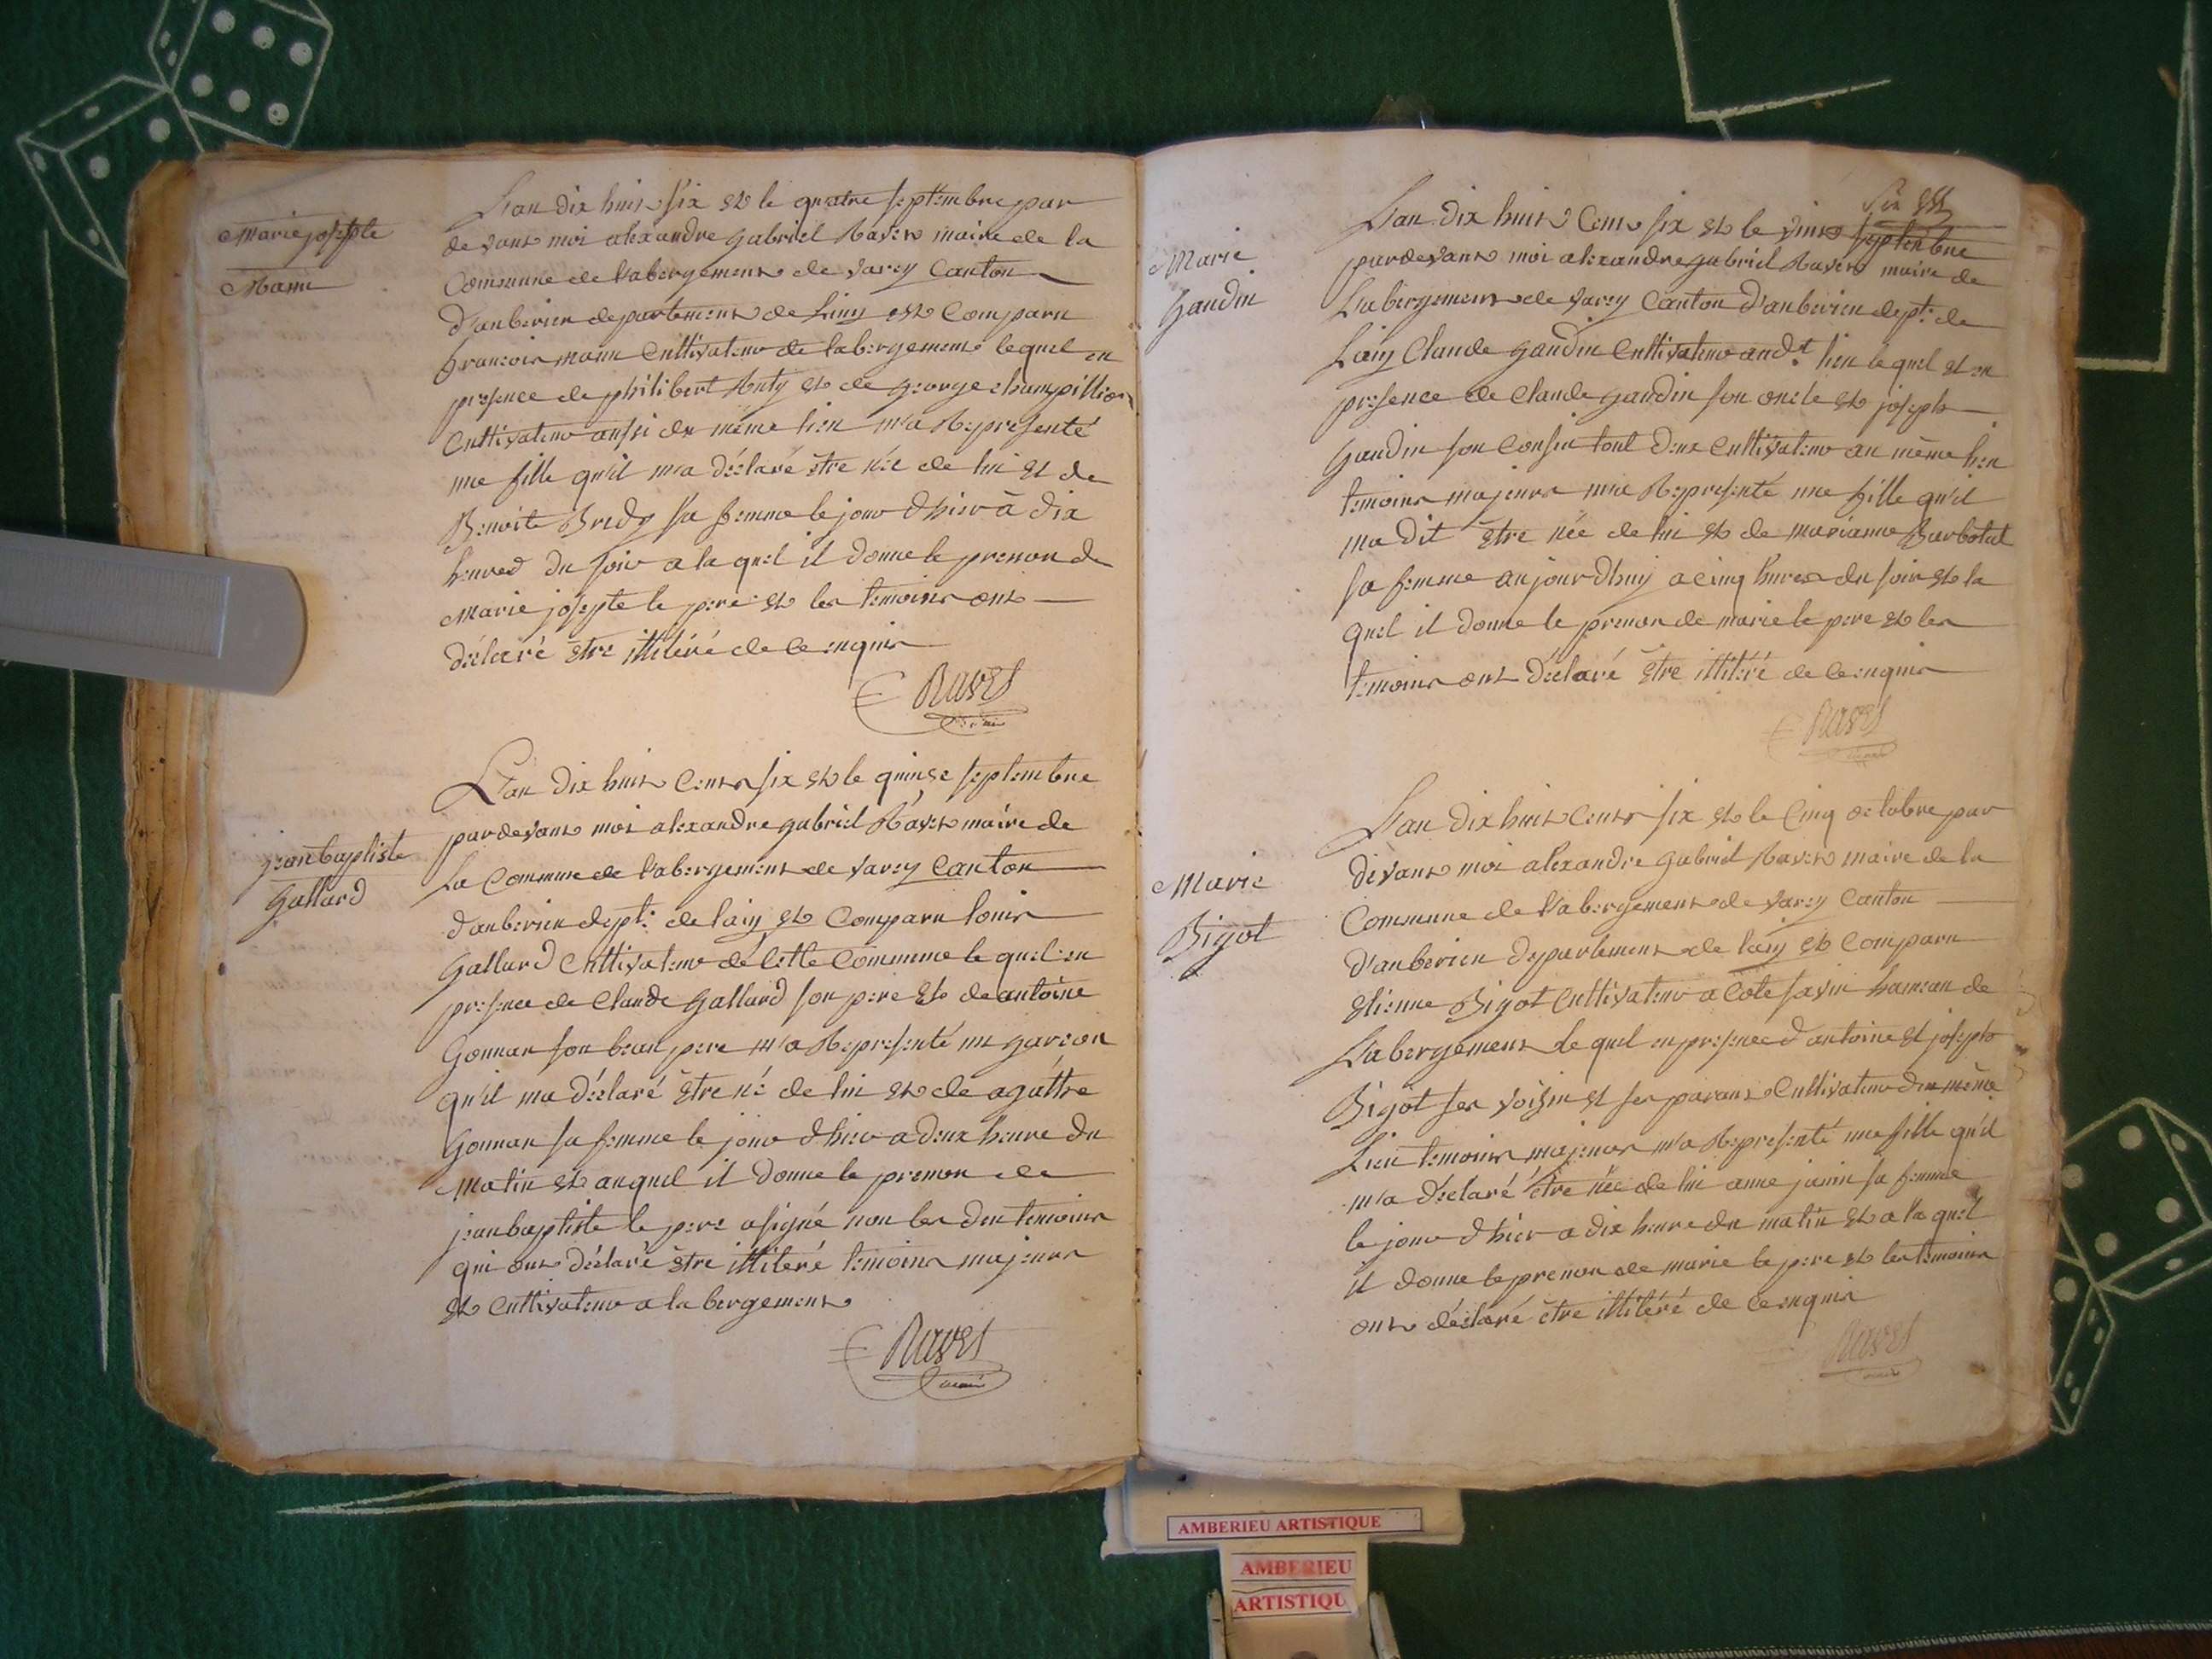 Marie josepte
Manu
L'an dix huit six et le quatre septembre par
devant moi alexandre gabriel Ravet maire de la
Commune de l'abergement de varey Canton
d'anberien departement de L'ain est Comparu
francois manu Cultivateur de l'abergement lequel en
presence de philibert et de george champillion
Cultivateur aussi du même lieu m'a Representé
une fille qu'il m'a déclaré être née de lui et de
Benoite Bredy sa femme le jour d'hier à dix
heures du soir a la quel il donne le prenon de
Marie josepte le pere et les temoins ont
déclaré être illiteré de ce enquis
Ravet
maire
jean baptiste
Gallard
L'an dix huit Cents six et le quinze septembre
pardevant moi alexandre gabriel Ravet maire de
La Commune de l'abergement de varey Canton
d'anberien dept: de l'ain est Comparu louis
Gallard Cultivateur de Cette Commune le quel en
presence de Claude Gallard son pere et de antoine
Gonnan son beau pere m'a Representé un garcon
qu'il ma déclaré être né de lui et de agathe
Gonnan sa femme le jour d'hier a deux heure du
Matin et auquel il donne le prenon de
jean baptiste le pere a signé non les deu temoins
qui ont déclaré être illiteré temoins majeurs
et Cultivateur a la bergement
Ravet
maire
Marie
Gaudin
Six
L'an dix huit Cent six et le vint septenbre
pardevant moi alexandre gabriel Ravet maire de
Labergement de varey Canton d'anberien dept: de
Lain Claude gaudin Cultivateur aud.t lieu le quel et en
presence de Claude gaudin son oncle et joseph
Gaudin son Cousin tout deux Cultivateur au même lieu
temoins majeurs m'a Representé une fille qu'il
ma dit être née de lui et de marianne Barbolat
sa femme aujourd'huy a cinq heures du soir et la
quel il donne le prenon de marie le pere et les
temoins ont déclaré être illitéré de ce enquis
Ravet
maire
Marie
Bigot
L'an dix huit Cents six et le Cinq octobre par
devant moi alexandre gabriel Ravet maire de la
Commune de l'abergement de varey Canton
d'anberien departement de l'ain et Comparu
etienne Bigot Cultivateur a Cote savin hameau de
Labergement le quel en presence d'antoine et joseph
Bigot ses voisin et ses parant Cultivateur du même
Lieu temoins majeurs m'a Representé une fille qu'il
m'a déclaré être née de lui anne janin sa femme
le jour d'hier a dix heure du matin et a la quel
il donne le prenon de marie le pere et les temoins
ont déclaré être illitéré de ce enquis
Ravet
maire
AMBERIEU ARTISTIQUE
AMBERIEU
ARTISTIQU